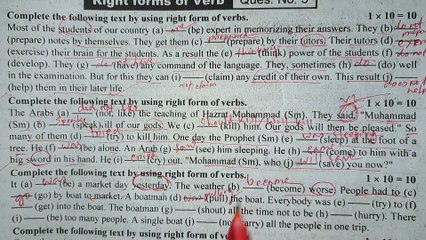 Right forms of verb Ques. No. 5
Complete the following text by using right form of verbs. 1 x 10 = 10
Most of the students of our country (a) (be) expert in memorizing their answers. They (b)
(prepare) notes by themselves. They get them (c) (prepare) by their tutors. Their tutors (d)
(exercise) their brain for the students. As a result the (e) (think) power of the students (f)
(develop). They (g) (have) any command of the language. They, sometimes (h) (do) well
in the examination. But for this they can (i) (claim) any credit of their own. This result (j)
(help) them in their later life.
Complete the following text by using right form of verbs. 1 x 10 = 10
The Arabs (a) did not like (not, like) the teaching of Hazrat Muhammad (Sm). They said, "Muhammad
(Sm) (b) (speak) ill of our gods. We (c) (kill) him. Our gods will then be pleased." So
many of them (d) (try) to kill him. One day the Prophet (Sm) (e) (sleep) at the foot of a
tree. He (f) (be) alone. An Arab (g) saw (see) him sleeping. He (h) (come) to him with a
big sword in his hand. He (i) (cry) out. "Mohammad (Sm), who (j) (save) you now?"
Complete the following text by using right form of verbs. 1 x 10 = 10
It (a) (be) a market day yesterday. The weather (b) become (become) worse. People had to (c)
go (go) by boat to market. A boatman (d) (pull) the boat. Everybody was (e) (try) to (f)
(get) into the boat. The boatman (g) (shout) all the time not to be (h) (hurry). There
(i) (be) too many people. A single boat (j) (not, carry) all the people in one trip.